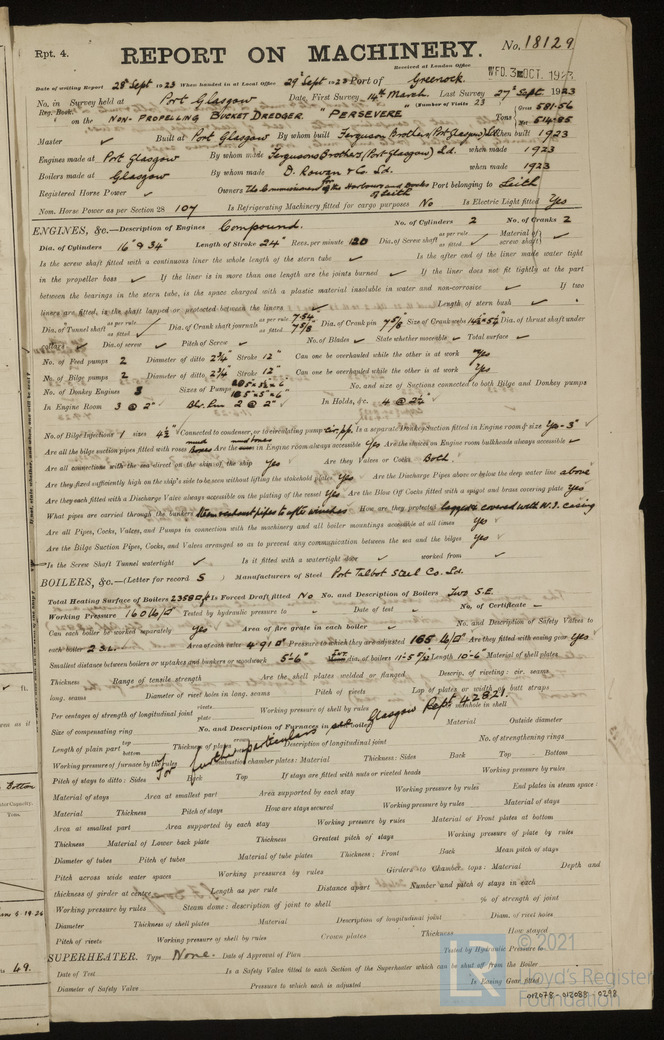 Rpt. 4.
REPORT ON MACHINERY.
No. 18129
Received at London Office
WED. 3 OCT. 1923
Date of writing Report 28th Sept 1923 When handed in at Local Office 29th Sept 1923 Port of Greenock.
No. in Survey held at Port Glasgow Date, First Survey 14th March Last Survey 27th Sept 1923
Reg. Book. (Number of Visits 23
on the NON-PROPELLING BUCKET DREDGER "PERSEVERE Tons Gross 581.56 Net 514.85
Master ✓ Built at Port Glasgow By whom built Ferguson Brothers (Port Glasgow) Ld. When built 1923
Engines made at Port Glasgow By whom made Fergusons Brothers (Port Glasgow) Ld. when made 1923
Boilers made at Glasgow By whom made D. Rowan & Co. Ld. when made 1923
Registered Horse Power ✓ Owners The Commissioners for the Harbour and Docks of Leith Port belonging to Leith
Nom. Horse Power as per Section 28 107 Is Refrigerating Machinery fitted for cargo purposes No Is Electric Light fitted Yes
ENGINES, &c.—Description of Engines Compound. No. of Cylinders 2 No. of Cranks 2
Dia. of Cylinders 16" & 34" Length of Stroke 24" Revs. per minute 120 Dia. of Screw shaft as per rule as fitted ✓ Material of screw shaft
Is the screw shaft fitted with a continuous liner the whole length of the stern tube ✓ Is the after end of the liner made water tight
in the propeller boss ✓ If the liner is in more than one length are the joints burned ✓ If the liner does not fit tightly at the part
between the bearings in the stern tube, is the space charged with a plastic material insoluble in water and non-corrosive ✓ If two
liners are fitted, is the shaft lapped or protected between the liners ✓ Length of stern bush ✓
Dia. of Tunnel shaft as per rule as fitted ✓ Dia. of Crank shaft journals as per rule 7.54 as fitted 7 5/8 Dia. of Crank pin 7 5/8 Size of Crank webs Dia. of thrust shaft under
collars ✓ Dia. of screw ✓ Pitch of Screw ✓ No. of Blades ✓ State whether moveable ✓ Total surface ✓
No. of Feed pumps 2 Diameter of ditto 2 3/4" Stroke 12" Can one be overhauled while the other is at work Yes
No. of Bilge pumps 2 Diameter of ditto 2 3/4" Stroke 12" Can one be overhauled while the other is at work Yes
No. of Donkey Engines 3 Sizes of Pumps No. and size of Suctions connected to both Bilge and Donkey pumps
In Engine Room 3 @ 2" Blr. Rm 2 @ 2" In Holds, &c. 4 @ 2 1/2"
No. of Bilge Injections 1 sizes 4 1/2" Connected to condenser, or to circulating pump cir. pp. Is a separate Donkey Suction fitted in Engine room & size Yes - 3"
Are all the bilge suction pipes fitted with roses mud Boxes Are the mud boxes in Engine room always accessible Yes Are the sluices on Engine room bulkheads always accessible ✓
Are all connections with the sea direct on the skin of the ship Yes Are they Valves or Cocks Both.
Are they fixed sufficiently high on the ship's side to be seen without lifting the stokehold plates Yes Are the Discharge Pipes above or below the deep water line above
Are they each fitted with a Discharge Valve always accessible on the plating of the vessel Yes Are the Blow Off Cocks fitted with a spigot and brass covering plate Yes
What pipes are carried through the bunkers Steam & exhaust pipes to after winches How are they protected lagged & covered with W.I. casing
Are all Pipes, Cocks, Valves, and Pumps in connection with the machinery and all boiler mountings accessible at all times Yes
Are the Bilge Suction Pipes, Cocks, and Valves arranged so as to prevent any communication between the sea and the bilges Yes
Is the Screw Shaft Tunnel watertight ✓ Is it fitted with a watertight door ✓ worked from ✓
BOILERS, &c.—(Letter for record S ) Manufacturers of Steel Port Talbot Steel Co. Ld.
Total Heating Surface of Boilers 2358 Is Forced Draft fitted No No. and Description of Boilers Two S.E.
Working Pressure 160 lb Tested by hydraulic pressure to ✓ Date of test ✓ No. of Certificate –
Can each boiler be worked separately Yes Area of fire grate in each boiler ✓ No. and Description of Safety Valves to
each boiler 2 S.L. Area of each valve 4.91 Pressure to which they are adjusted 165 lb Are they fitted with easing gear Yes
Smallest distance between boilers or uptakes and bunkers or woodwork 5'-6" Ext. dia. of boilers Length 10'-6" Material of shell plates
Thickness Range of tensile strength Are the shell plates welded or flanged Descrip. of riveting: cir. seams
long. seams Diameter of rivet holes in long. seams Pitch of rivets Lap of plates or width of butt straps
Per centages of strength of longitudinal joint rivets plate Working pressure of shell by rules Size of manhole in shell
For further particulars see Glasgow Rept 42821.
Size of compensating ring No. and Description of Furnaces in each boiler Material Outside diameter
Length of plain part top bottom Thickness of plates Description of longitudinal joint No. of strengthening rings
Working pressure of furnace by the rules Combustion chamber plates: Material Thickness: Sides Back Top Bottom
Pitch of stays to ditto: Sides Back Top If stays are fitted with nuts or riveted heads Working pressure by rules
Material of stays Area at smallest part Area supported by each stay Working pressure by rules End plates in steam space:
Material Thickness Pitch of stays How are stays secured Working pressure by rules Material of stays
Area at smallest part Area supported by each stay Working pressure by rules Material of Front plates at bottom
Thickness Material of Lower back plate Thickness Greatest pitch of stays Working pressure of plate by rules
Diameter of tubes Pitch of tubes Material of tube plates Thickness: Front Back Mean pitch of stays
Pitch across wide water spaces Working pressures by rules Girders to Chamber tops: Material Depth and
thickness of girder at centre Length as per rule Distance apart Number and pitch of stays in each
Working pressure by rules Steam dome: description of joint to shell % of strength of joint
Diameter Thickness of shell plates Material Description of longitudinal joint Diam. of rivet holes
Pitch of rivets Working pressure of shell by rules Crown plates Thickness How stayed
SUPERHEATER. Type None. Date of Approval of Plan Tested by Hydraulic Pressure to
Date of Test Is a Safety Valve fitted to each Section of the Superheater which can be shut off from the Boiler
Diameter of Safety Valve Pressure to which each is adjusted Is Easing Gear fitted
© 2021
Lloyd's Register
Foundation
012078-012088-0298